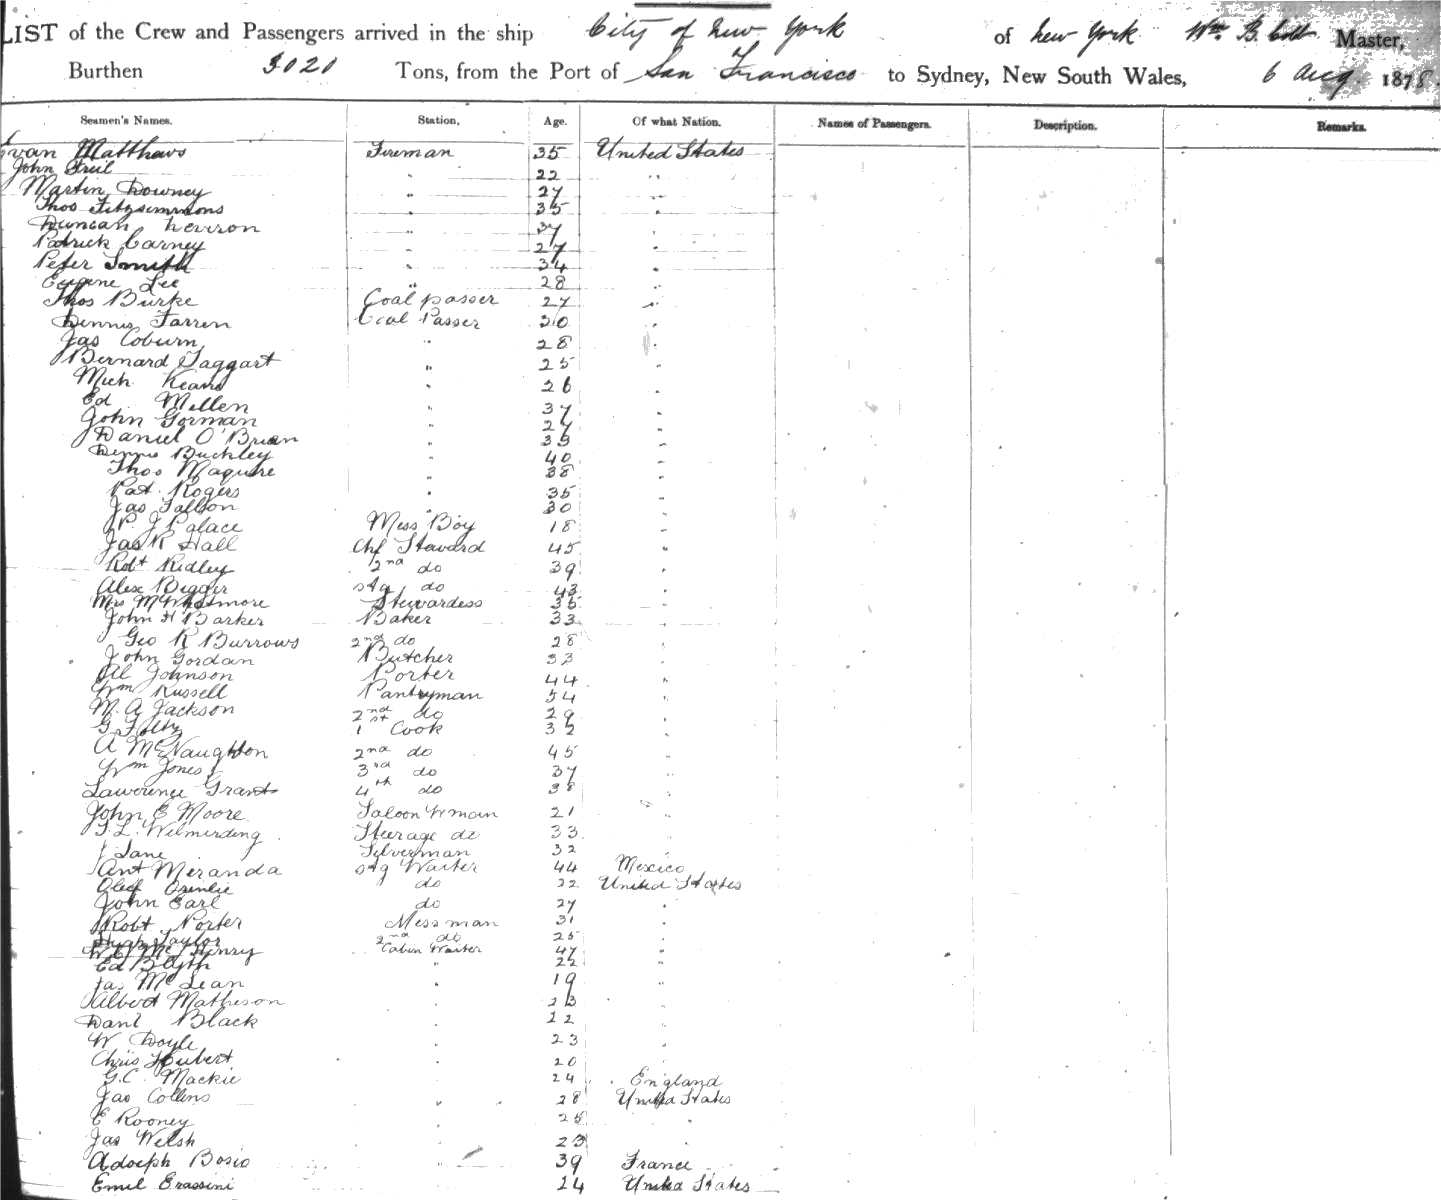 LIST of the Crew and Passengers arrived in the ship City of New York of New York Wm B. Cobb Master,
Burthen 3020 Tons, from the Port of San Francisco to Sydney, New South Wales, 6 Aug. 1878.
Seamen's Names. Station, Age. Of what Nation. Names of Passengers. Description. Remarks.
Matthews Fireman 35 United States
John Friel " 22 "
Martin Downey " 27 "
Thos Fitzsimmons " 35 "
Duncan " 37 "
Patrick Carney " 27 "
Peter Smith " 34 "
Eugene Lee " 28 "
Thos Burke Coal passer 27 "
Dennis Farren Coal Passer 30 "
Jas Coburn " 28 "
Bernard Taggart " 25 "
Mich Keane " 26 "
Ed Mellen " 37 "
John Gorman " 27 "
Daniel O'Brien " 33 "
Dennis Buckley " 40 "
Thos Maguire " 38 "
Pat Rogers " 35 "
Jas Fallon " 30 "
P. J Palace Mess Boy 18 "
Jas R Hall Chf Steward 45 "
Robt Ridley 2nd do 39 "
Alex Begger stg do 43 "
Mrs Stewardess 35 "
John H Barker Baker 33 "
Geo R Burrows 2nd do 28 "
John Gordan Butcher 33 "
Al Johnson Porter 44 "
Wm Russell Pantryman 54 "
M. A Jackson 2nd do 29 "
G 1st Cook 32 "
A McNaughton 2nd do 45 "
Wm Jones 3rd do 37 "
Lawerence Grant 4th do 38 "
John E Moore Saloon Wman 21 "
T. L. Wilmerding Steerage do 33 "
J Lane Silverman 32 "
Ant Meranda stg Waiter 44 Mexico
do 22 United States
John Earl do 27 "
Robt Porter Messman 31 "
Hugh Taylor 2nd do 25 "
McHenry Cabin Waiter 47 "
Ed Blyth " 22 "
Jas McLean " 19 "
Albert Matheson " 23 "
Danl Black " 22 "
W Doyle " 23 "
Chris Hubert " 20 "
G.C. Mackie " 24 England
Jas Collins " 28 United States
E Rooney " 25 "
Jas Welsh " 23 "
Adolph Bosio " 39 France
Emil Erassini " 24 United States